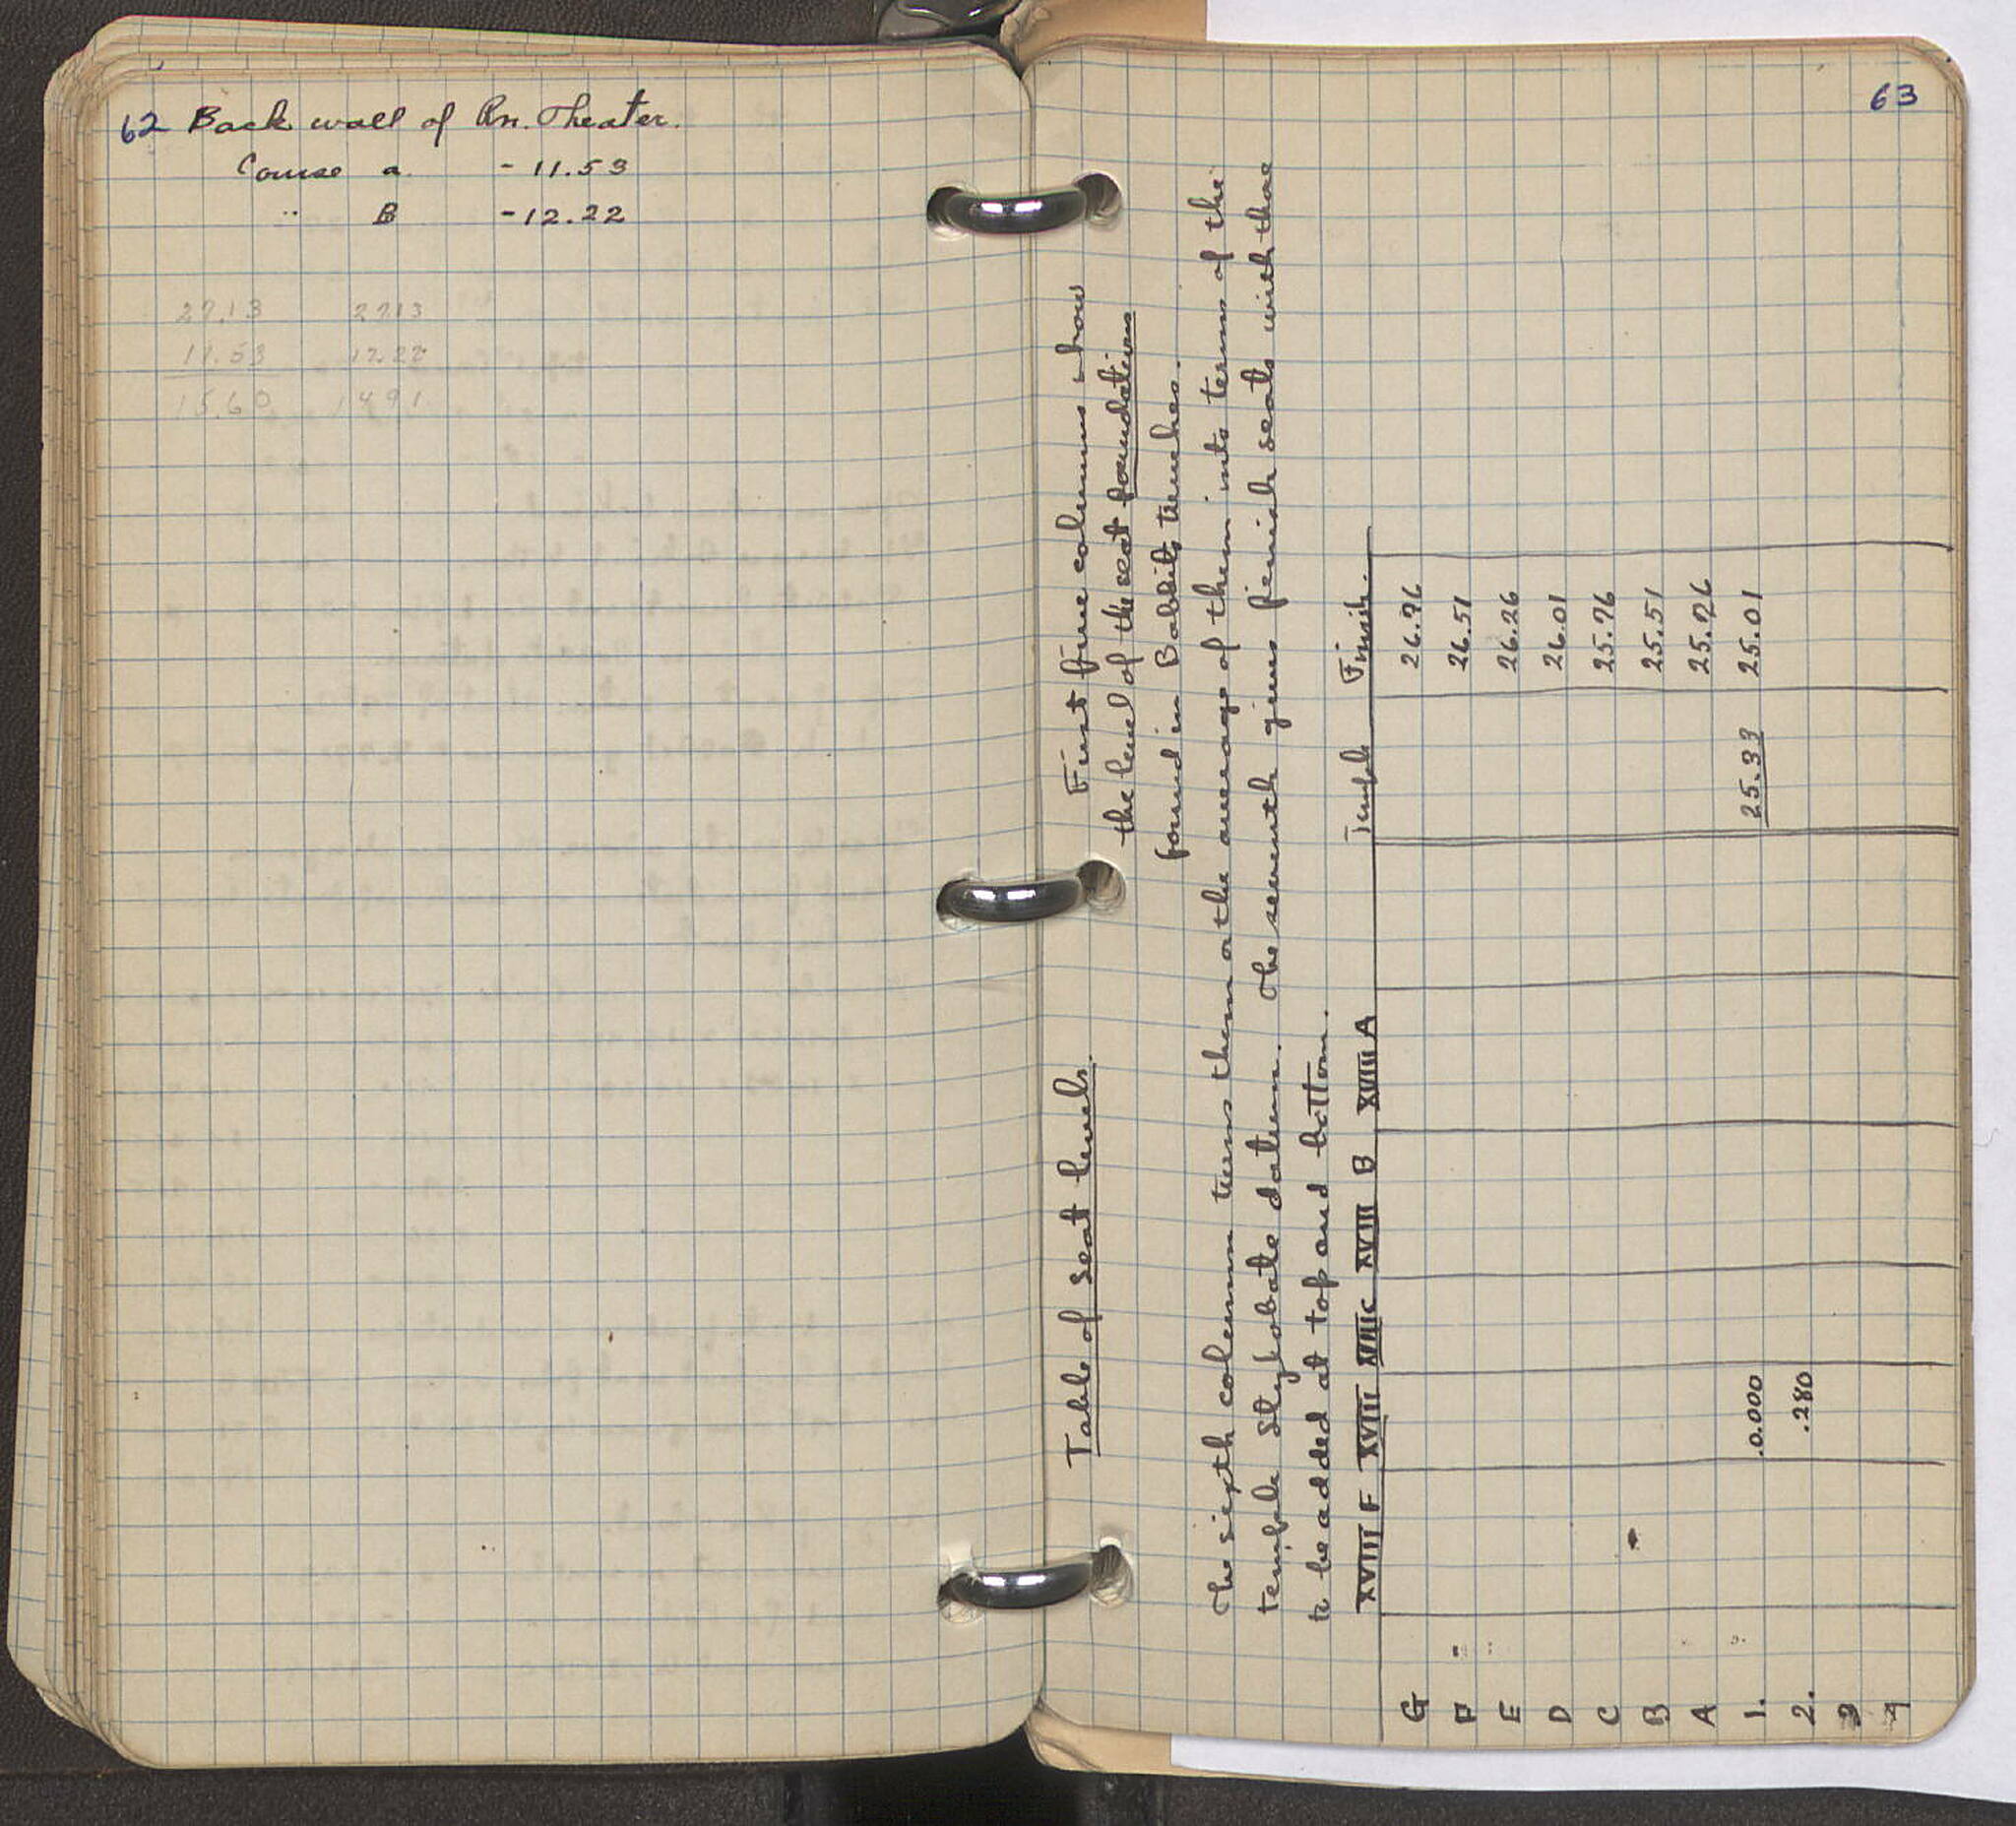 62 Back wall of Rn. Theater.
Course a. - 11.53
" B -12.22
27.13 27.13
11.53 12.22
15.60 14 91
63
Table of seat levels. First five columns show
the level of the seat foundations
found in Babbits trenches.
The sixth column turns them or the average of them into terms of the
temple Stylobate datum. The seventh gives finish seats with those
to be added at top and bottom.
XVIII F XVIII XVIIIC XVIII B XVIII A Temple Finish.
G 26.76
F 26.51
E 26.26
D 26.01
C 25.76
B 25.51
A 25.26
1. .0.000 25.33 25.01
2. .280
3
4